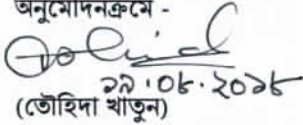 অনুমোদনক্রমে -
২৯.০৮.২০১৮
(তৌহিদা খাতুন)